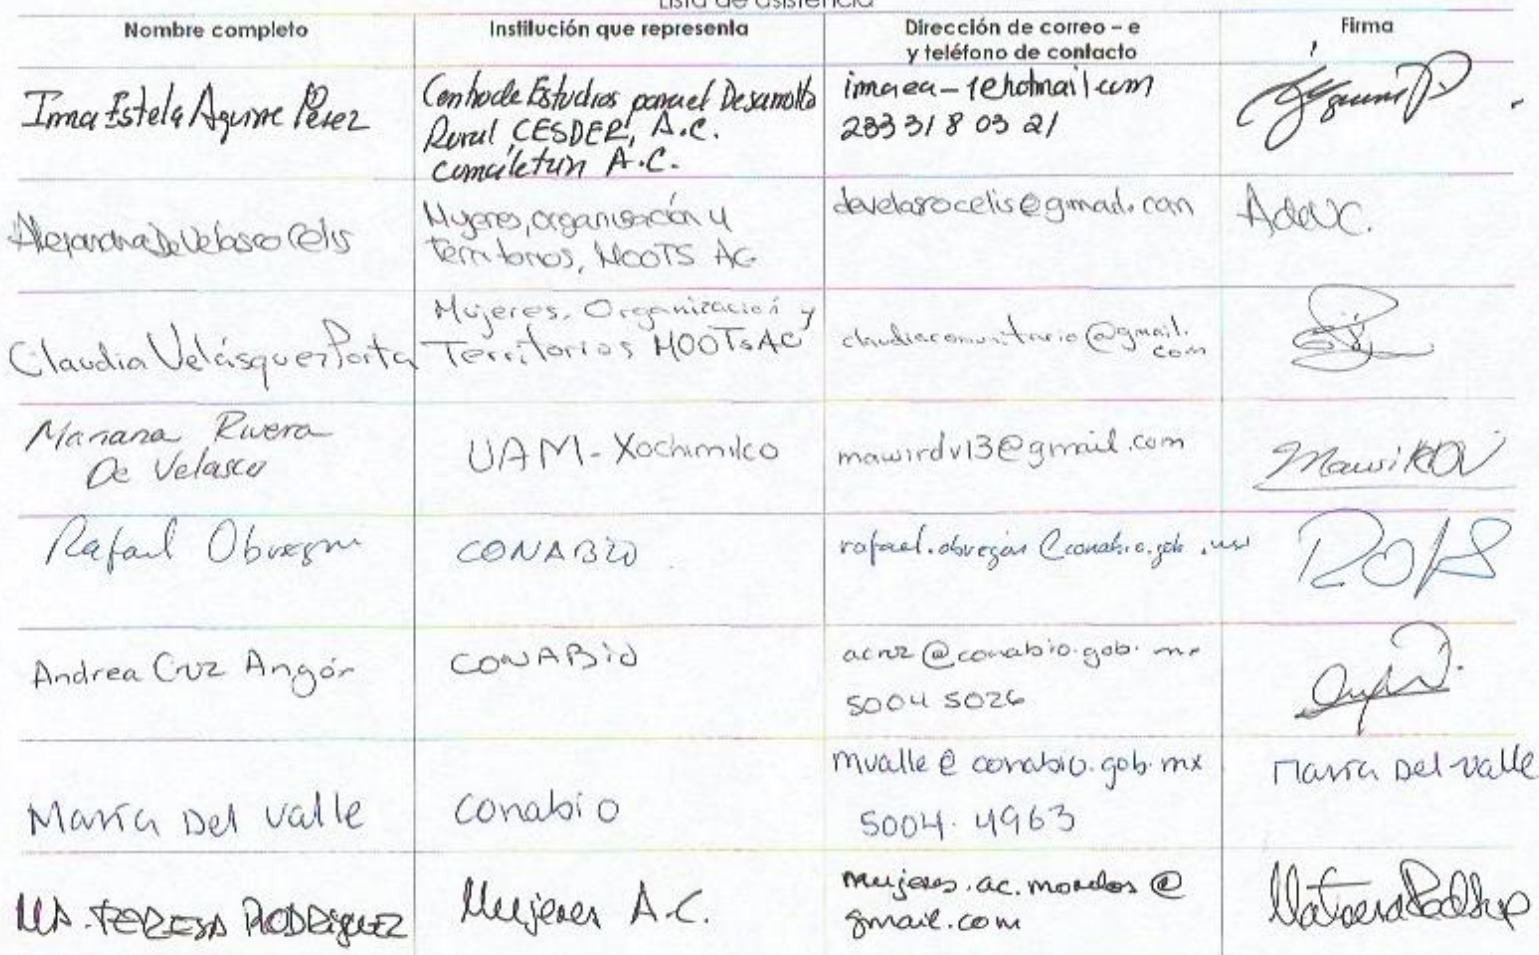 Lista de asistencia
Nombre completo
Institución que representa
Dirección de correo – e
y teléfono de contacto
Firma
Irma Estela Aguirre Pérez
Centro de Estudios para el Desarrollo
Rural CESDER, A.C.
Comaletzin A.C.
imaea-1@hotmail.com
233 31 8 03 21
Alejandra De Velasco Celis
Mujeres, organización y
Territorios, MOOTS AC
develascocelis@gmail.com
AdeVC.
Claudia Velásquez Porta
Mujeres, Organización y
Territorios MOOTs AC
claudiacomunitario@gmail.
com
Mariana Rivera
De Velasco
UAM-Xochimilco
mawirdv13@gmail.com
MawiRDV
Rafael Obregón
CONABIO
rafael.obregon@conabio.gob.mx
Andrea Cruz Angón
CONABIO
acruz@conabio.gob.mx
5004 5026
María Del Valle
Conabio
mvalle@conabio.gob.mx
5004.4963
María Del Valle
MA. TERESA RODRIGUEZ
Mujeres A.C.
mujeres.ac.morelos@
gmail.com